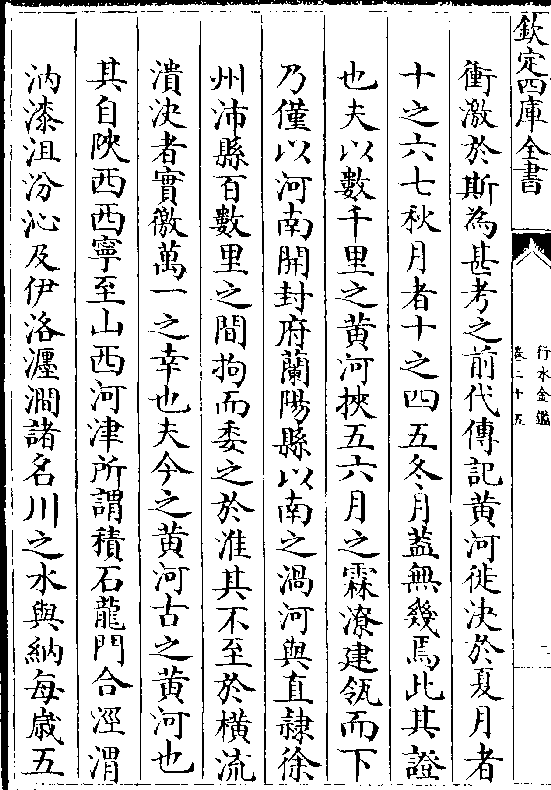 欽定四庫全書
行水金鑑
卷二十五
衝激於斯為甚考之前代傳記黄河徙决於夏月者
十之六七秋月者十之四五冬月蓋無幾焉此其證
也夫以數千里之黄河挾五六月之霖潦建瓴而下
乃僅以河南開封府蘭陽縣以南之渦河與直隸徐
州沛縣百數里之間拘而委之於淮其不至於横流
潰决者實徼萬一之幸也夫今之黄河古之黄河也
其自陜西西寧至山西河津所謂積石龍門合涇渭
汭漆沮汾沁及伊洛瀍澗諸名川之水與納每歳五